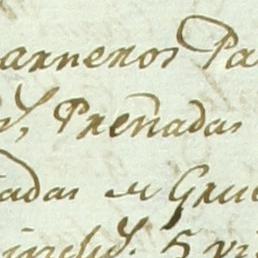 arneros Pa
s, Preñadas
adas de Grue
5 vi